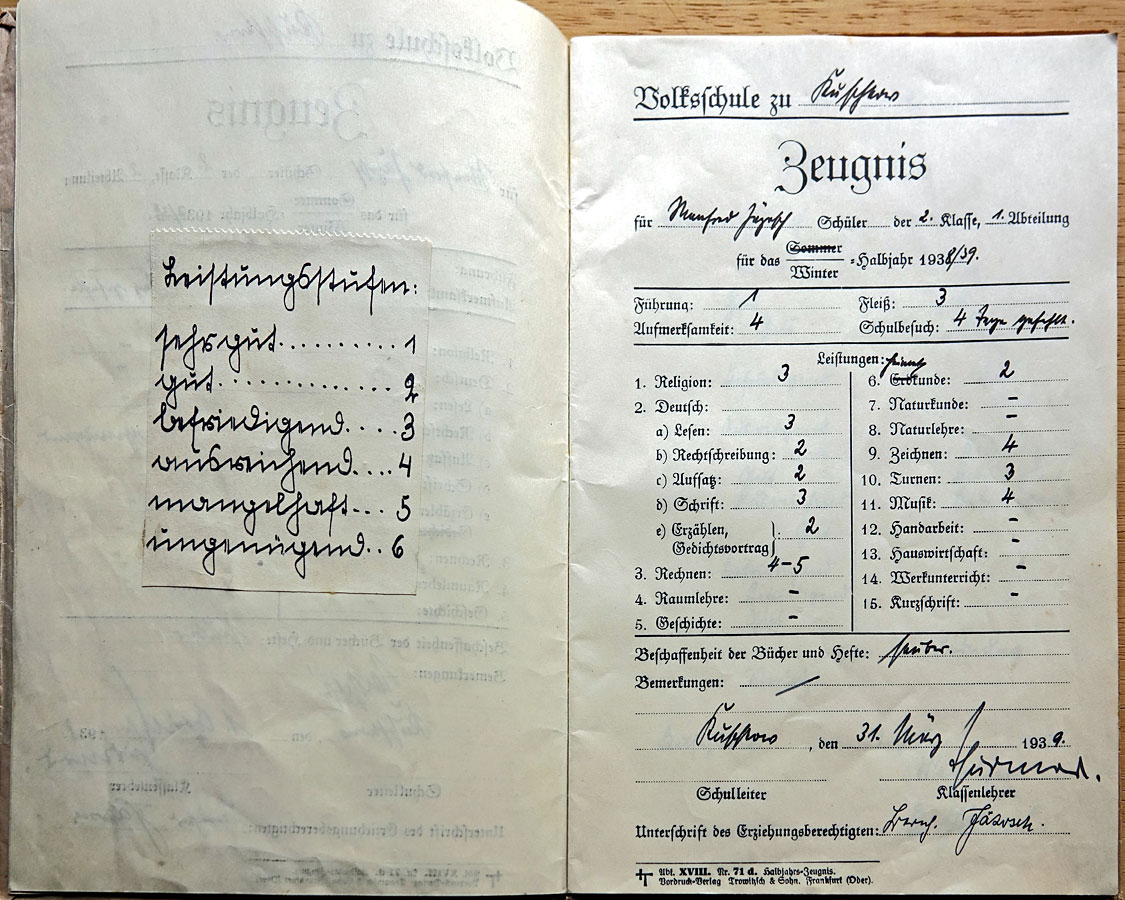 Leistungsstufen:
sehr gut.......... 1
gut............. 2
befriedigend.... 3
ausreichend.... 4
mangelhaft... 5
ungenügend.. 6
Volksschule zu Kuschkow
Zeugnis
für Manfred Schüler der 2. Klasse, 1. Abteilung
für das Sommer
Winter =Halbjahr 1938/39.
Führung: 1 Fleiß: 3
Aufmerksamkeit: 4 Schulbesuch: 4 Tage gefehlt.
Leistungen:
1. Religion: 3
2. Deutsch:
a) Lesen: 3
b) Rechtschreibung: 2
c) Aufsatz: 2
d) Schrift: 3
e) Erzählen,
Gedichtsvortrag: 2
3. Rechnen: 4-5
4. Raumlehre: -
5. Geschichte: -
Heimat
6. Erdkunde: 2
7. Naturkunde: -
8. Naturlehre: -
9. Zeichnen: 4
10. Turnen: 3
11. Musik: 4
12. Handarbeit: -
13. Hauswirtschaft: -
14. Werkunterricht: -
15. Kurzschrift: -
Beschaffenheit der Bücher und Hefte: sauber.
Bemerkungen: /
Kuschkow, den 31. März 1939.
Schulleiter Klassenlehrer
Unterschrift des Erziehungsberechtigten:
Abt. XVIII. Nr. 71 d. Halbjahrs-Zeugnis.
Vordruck-Verlag Trowitzsch & Sohn. Frankfurt (Oder).